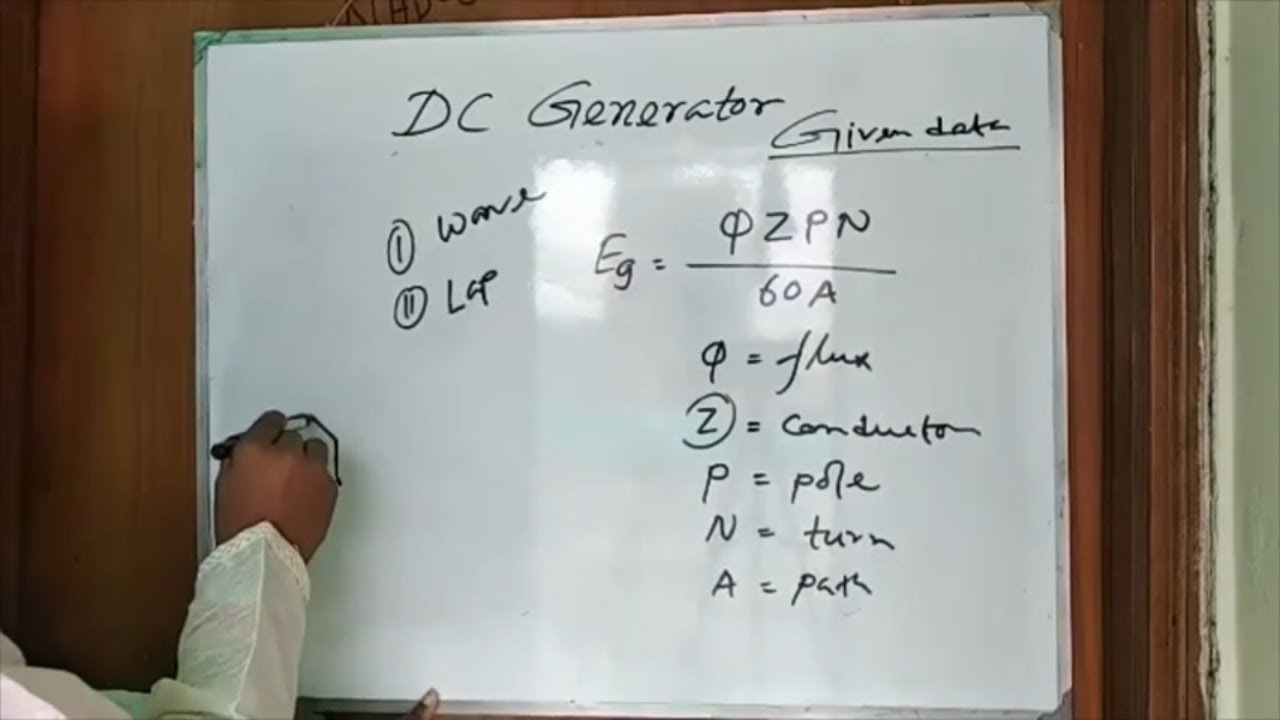 DC Generator
Given data
I Wave
II Lap
Eg = φZPN / 60A
φ = flux
Z = Conductor
P = pole
N = turn
A = path